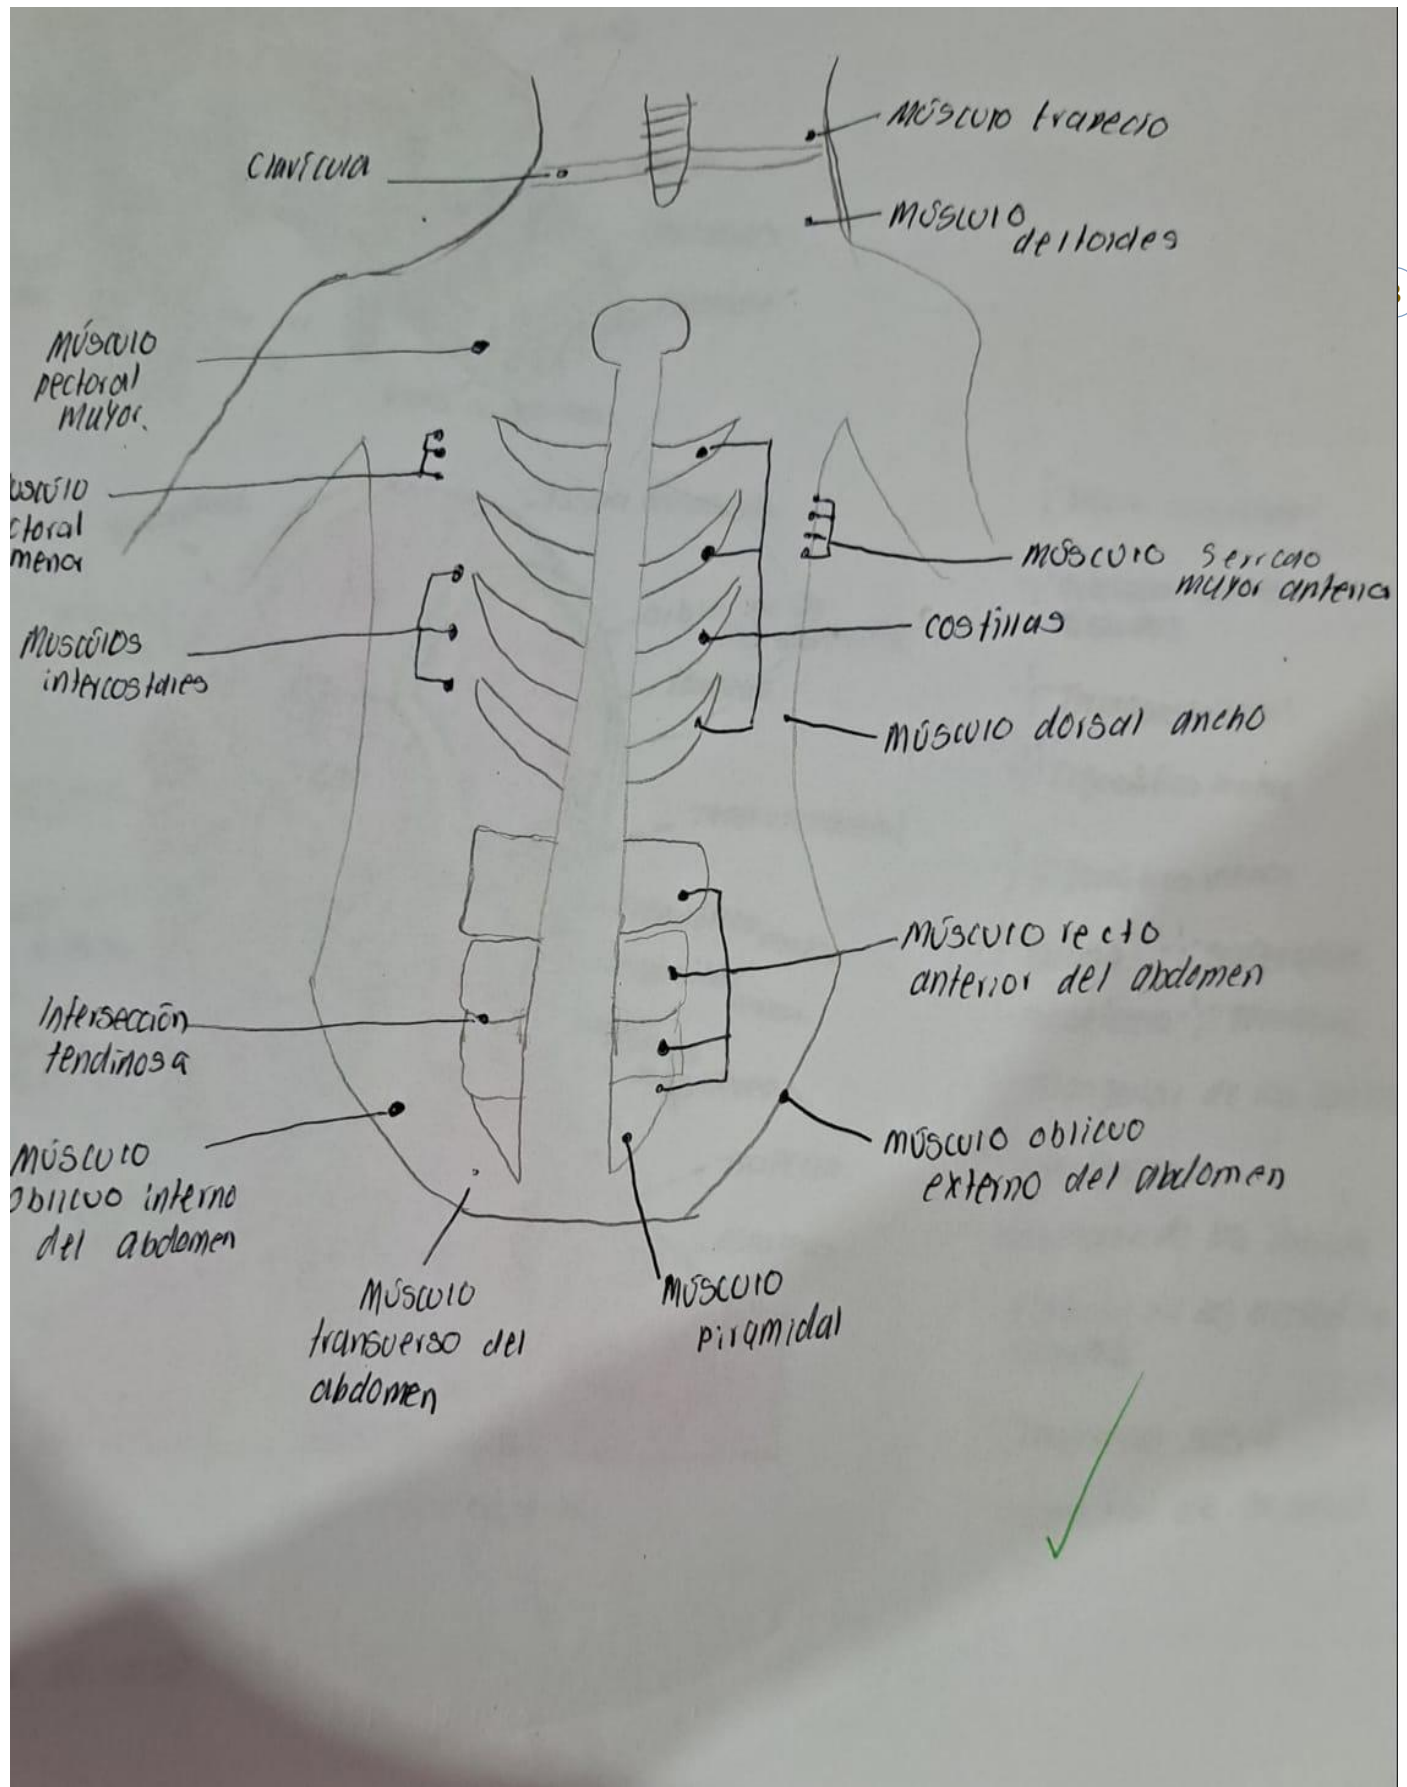 Clavícula
Músculo trapecio
Músculo
deltoides
Músculo
pectoral
mayor.
usculo
ctoral
menor
Musculos
intercostales
Músculo serrato
mayor anterio
costillas
Músculo dorsal ancho
Músculo recto
anterior del abdomen
Intersección
tendinosa
Músculo
oblicuo interno
del abdomen
Músculo oblicuo
externo del abdomen
Músculo
transverso del
abdomen
Músculo
piramidal